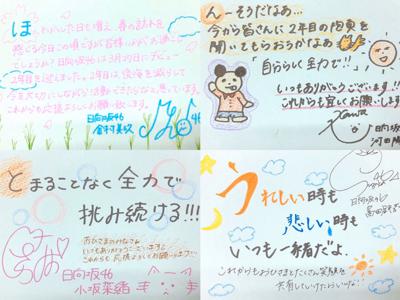 ほんわかした日も増え、春の訪れを
感じる今日この頃ですが皆様いかがお過ごし
でしょうか？日向坂46は3月27日にデビュー
2年目を迎えました。
これからも応援よろしくお願い致します。
日向坂46
金村美玖
んーそうだなあ...
今から皆さんに2年目の抱負を
聞いてもらおうかなあ
「自分らしく全力で!!」
いつもありがとうございます!!
これからも宜しくお願いします
日向坂46
とまることなく全力で
挑み続ける!!!
おひさまのみなさん
いつもありがとうございます!
これからも応援よろしくお願いします
日向坂46
小坂菜緒
うれしい時も
悲しい時も
いつも一緒だよ。
これからもおひさまとたくさん笑顔を
共有していけたらいいな!!
日向坂46